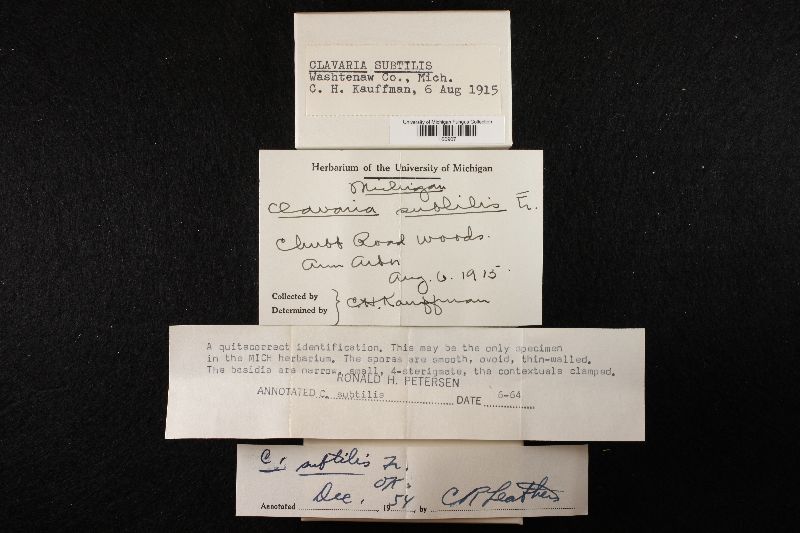 CLAVARIA SUBTILIS
Washtenaw Co., Mich.
C. H. Kauffman, 6 Aug 1915
University of Michigan Fungus Collection
Herbarium of the University of Michigan
Michigan
Clavaria subtilis Fr.
Chubb Road woods.
Ann Arbor
Aug. 6. 1915.
Collected by
Determined by
C.H. Kauffman
A quitecorrect identification. This may be the only specimen
in the MICH herbarium. The spores are smooth, ovoid, thin-walled.
The basidia are narrow, small, 4-sterigmate, the contextuals clamped.
RONALD H. PETERSEN
ANNOTATED C. subtilis DATE 6-64
C. subtilis Fr.
OK.
Annotated Dec. 1954, by C R Leathers